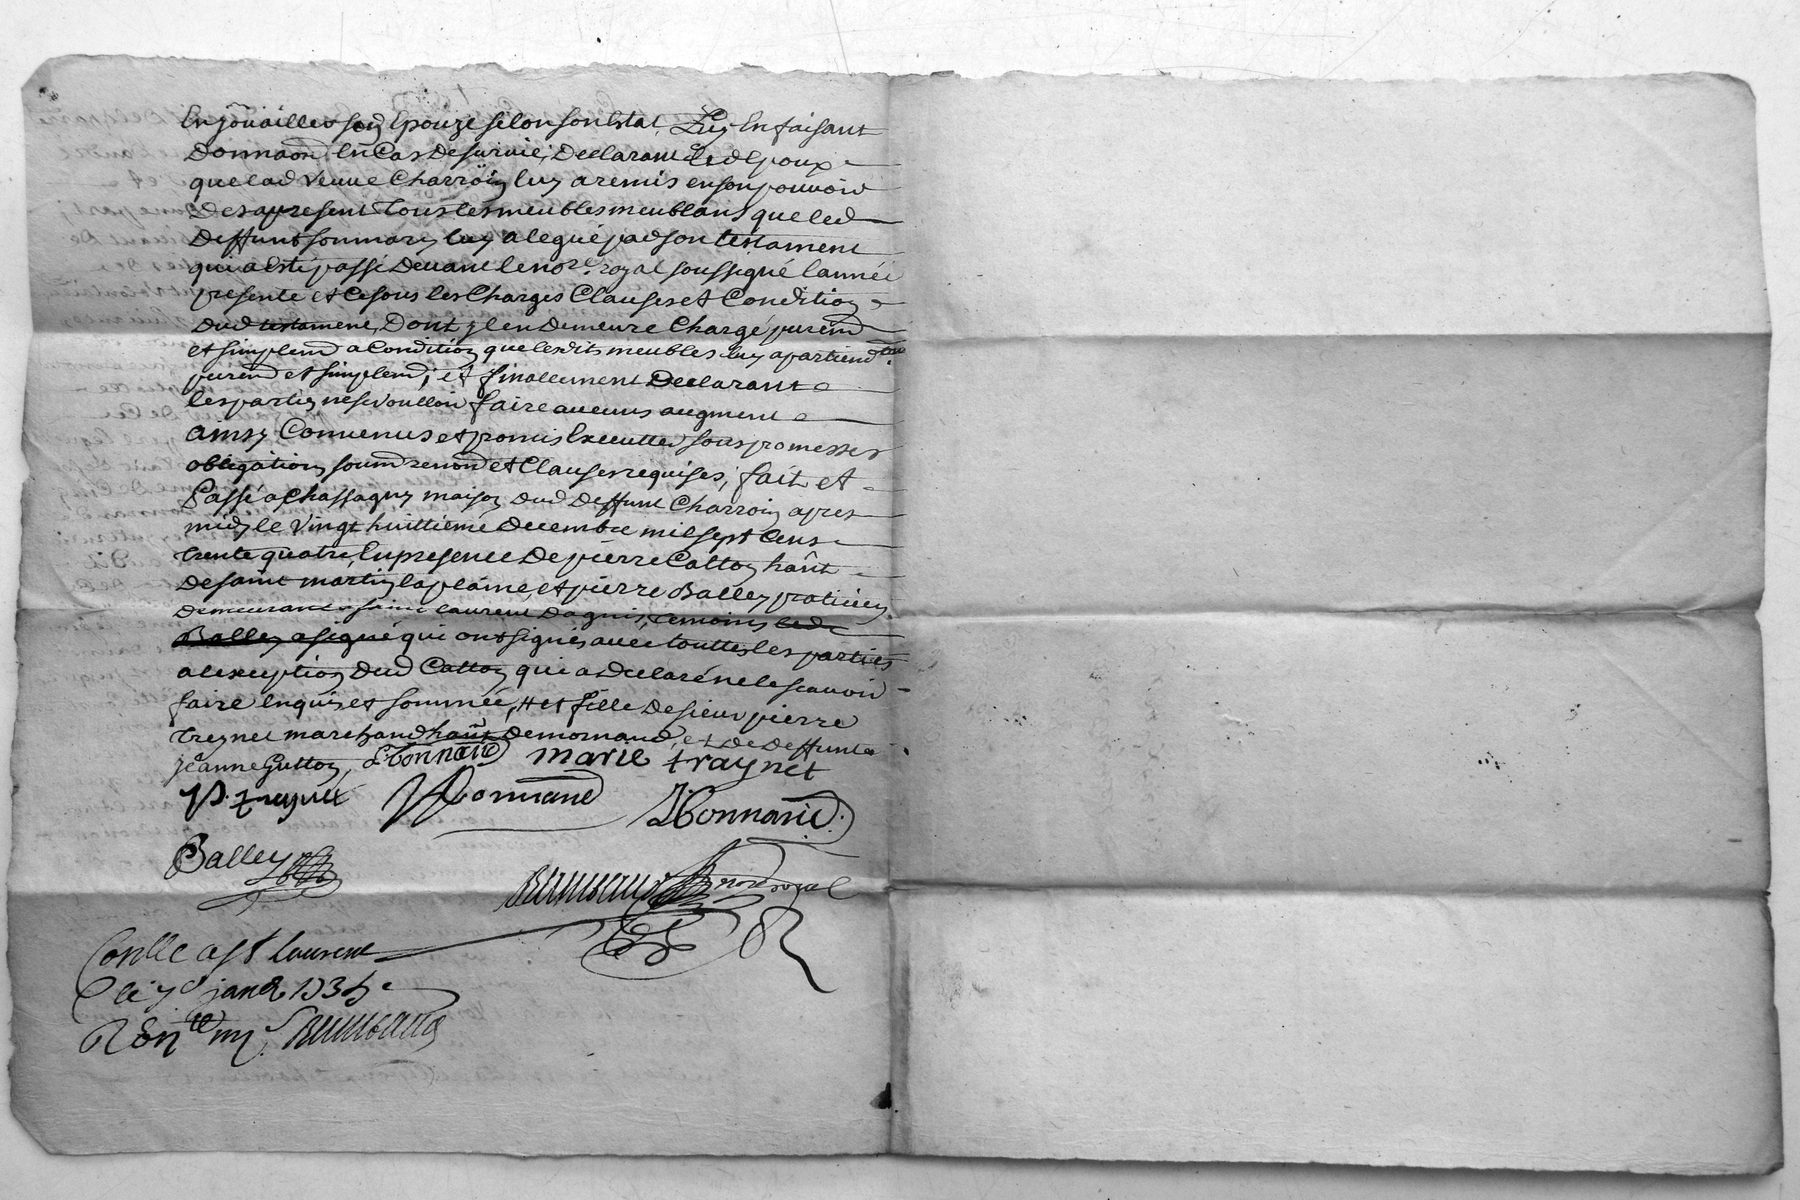 En Joüailles son Epouze selon son Estat, Luy En faisant
Donnaon En Cas De survie; Declarant led Epoux
que lad Veuve Charroin luy a remis en son pouvoir
Des apresent tous les meubles meublans que led
Deffunt son mary luy a legué par son testament
qui a Esté passé Devant le nore. royal soussigné lannée
presente et ce sous les Charges Clauses et Condition
Dud testament, Dont yl en Demeure Chargé purem
et simplem a Condition que lesdits meubles luy apartiendron
purem et simplem; et finallement Declarant
les partyes ne se voulloir faire aucuns augment
ainsy Convenus et promis Executter sous promesses
obligation soum renon et Clauses requises; fait et
Passé a Chassagny maison dud Deffunt Charroin apres
midy le Vingt huittieme Decembre mil sept Cens
trente quatre, En presence De pierre Catton hânt
De saint martin la plaine, et pierre Balley praticien
Demeurant a saint laurent Dagnis, temoins led
Balley a signé qui ont signés avec touttes les parties
a lexeption Dud Catton que a Declaré ne le scavoir
faire Enquis et sommée, # et fille De sieur pierre
treynet marchand hânt De mornand, et De Deffunte
Jeanne Gutton, Bonnard marie traynet
P. treynet Bonnand JBonnard
Balley
nore royal
Conlle a St Laurent
le 7e janr 1735